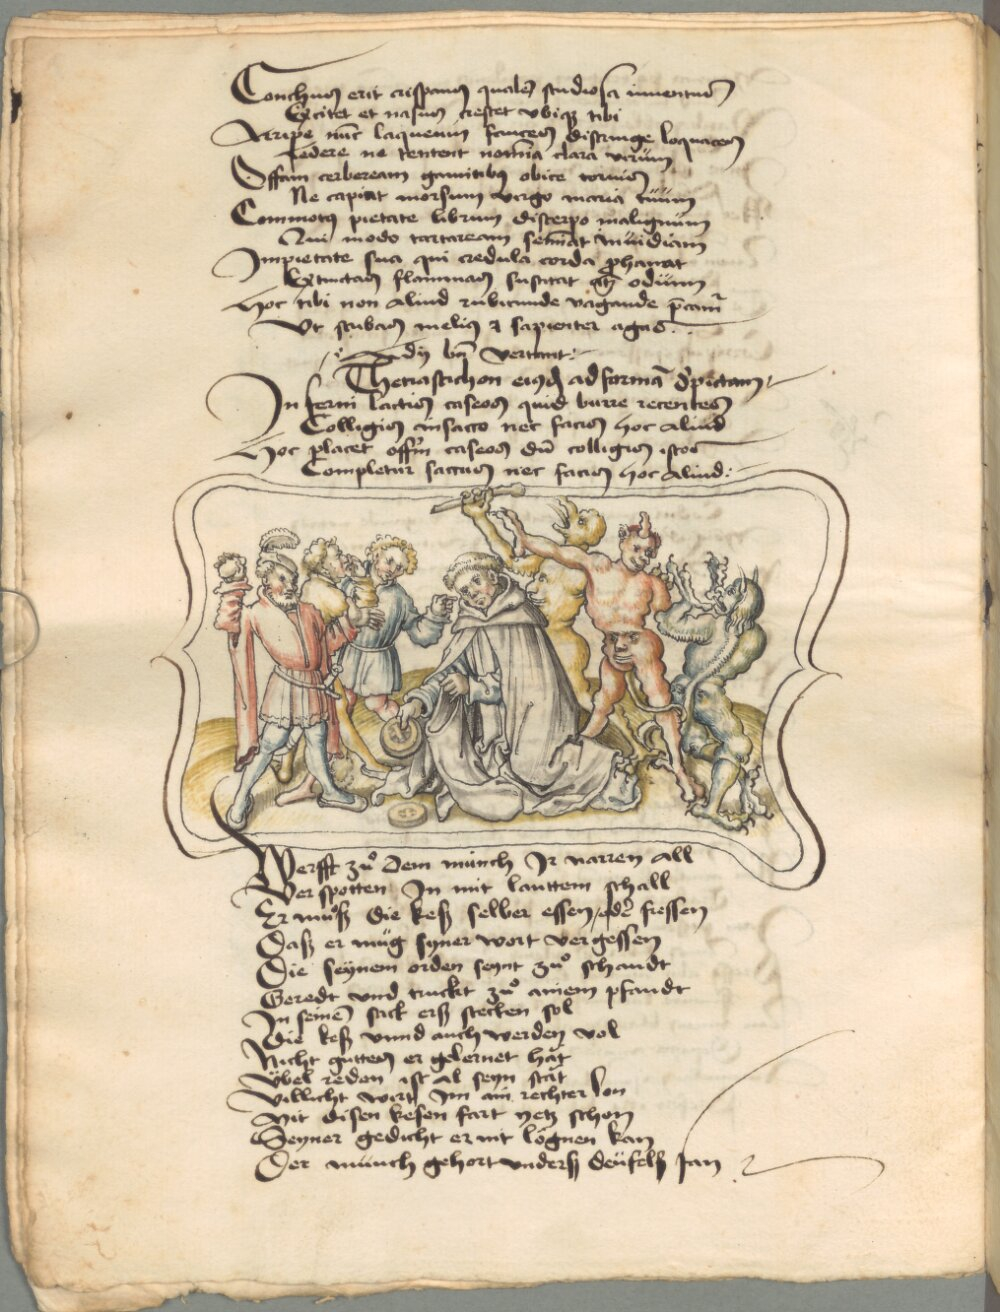 Conchus erit crispans quales studiosa iuventus
Excitet et nasus crescet ubiqz tibi
Arripe nunc laqueum fauces distringe loquaces
ledere ne tentent nomina clara virum
Offam cerbeream ganitibus obice torvis
Ne capiat morsum virgo maria tuum
Commotus pietate librum discerpo malignum
Qui modo tartaream seminat invidiam
Impietate sua qui credula corda prophanat
Extinctas flammas suscitat odium
Hoc tibi non aliud rubicunde vagande
Ut scribas melius et sapienter agas
dij vertant
Thetrastichon ad formam depictam
In ferni lactis caseos quid burre recentes
Colligis in sacco nec facis hoc aliud
Hoc placet caseos dum colligis istos
Completur saccus nec facis hoc aliud
Werfft zuo dem münch Ir narren all
Verspotten In mit lauttem schall
Er muoß die keß selber essen oder fressen
Daß er müg syner wort vergessen
Die seynem orden seynt zuo schandt
Geredt vnd truckt zuo ainem pfandt
In seinen sack erß stecken sol
Die keß vnnd auch werden vol
Nicht guttes er gelernet hat
Übel reden ist al seyn stat
Villicht wirt Im ain rechter lon
Mit disen kesen fart yetz schon
Seyner gedicht er nit lögnen kan
Der münch gehort vnderß deüfelß fan